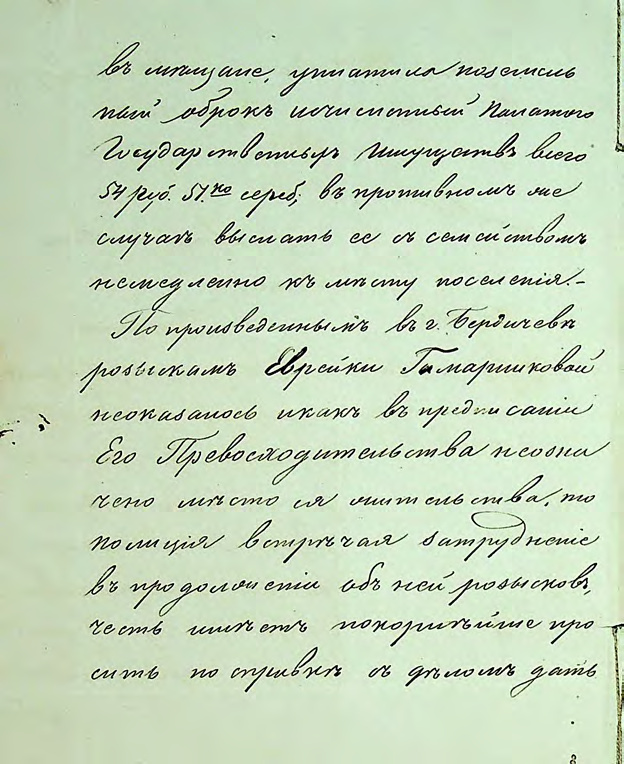 въ мѣщане, уплатила поземель
ный оброкъ исчисленный Палатою
Государственныхъ Имуществъ всего
54 руб. 51. ко сереб; въ противномъ же
случаѣ выслать ее съ семействомъ
немедленно къ мѣсту поселенія.-
По произведеннымъ въ г. Бердичевѣ
розыскамъ Еврейки Гамаршиковой
неоказалось икакъ въ предписаніи
Его Превосходительства неозна
чено мѣсто ея жительства, то
полиція встрѣчая затрудненіе
въ продолженіи объ ней розысковъ,
честь имѣетъ покорнѣйше про
сить по справкѣ съ дѣломъ дать